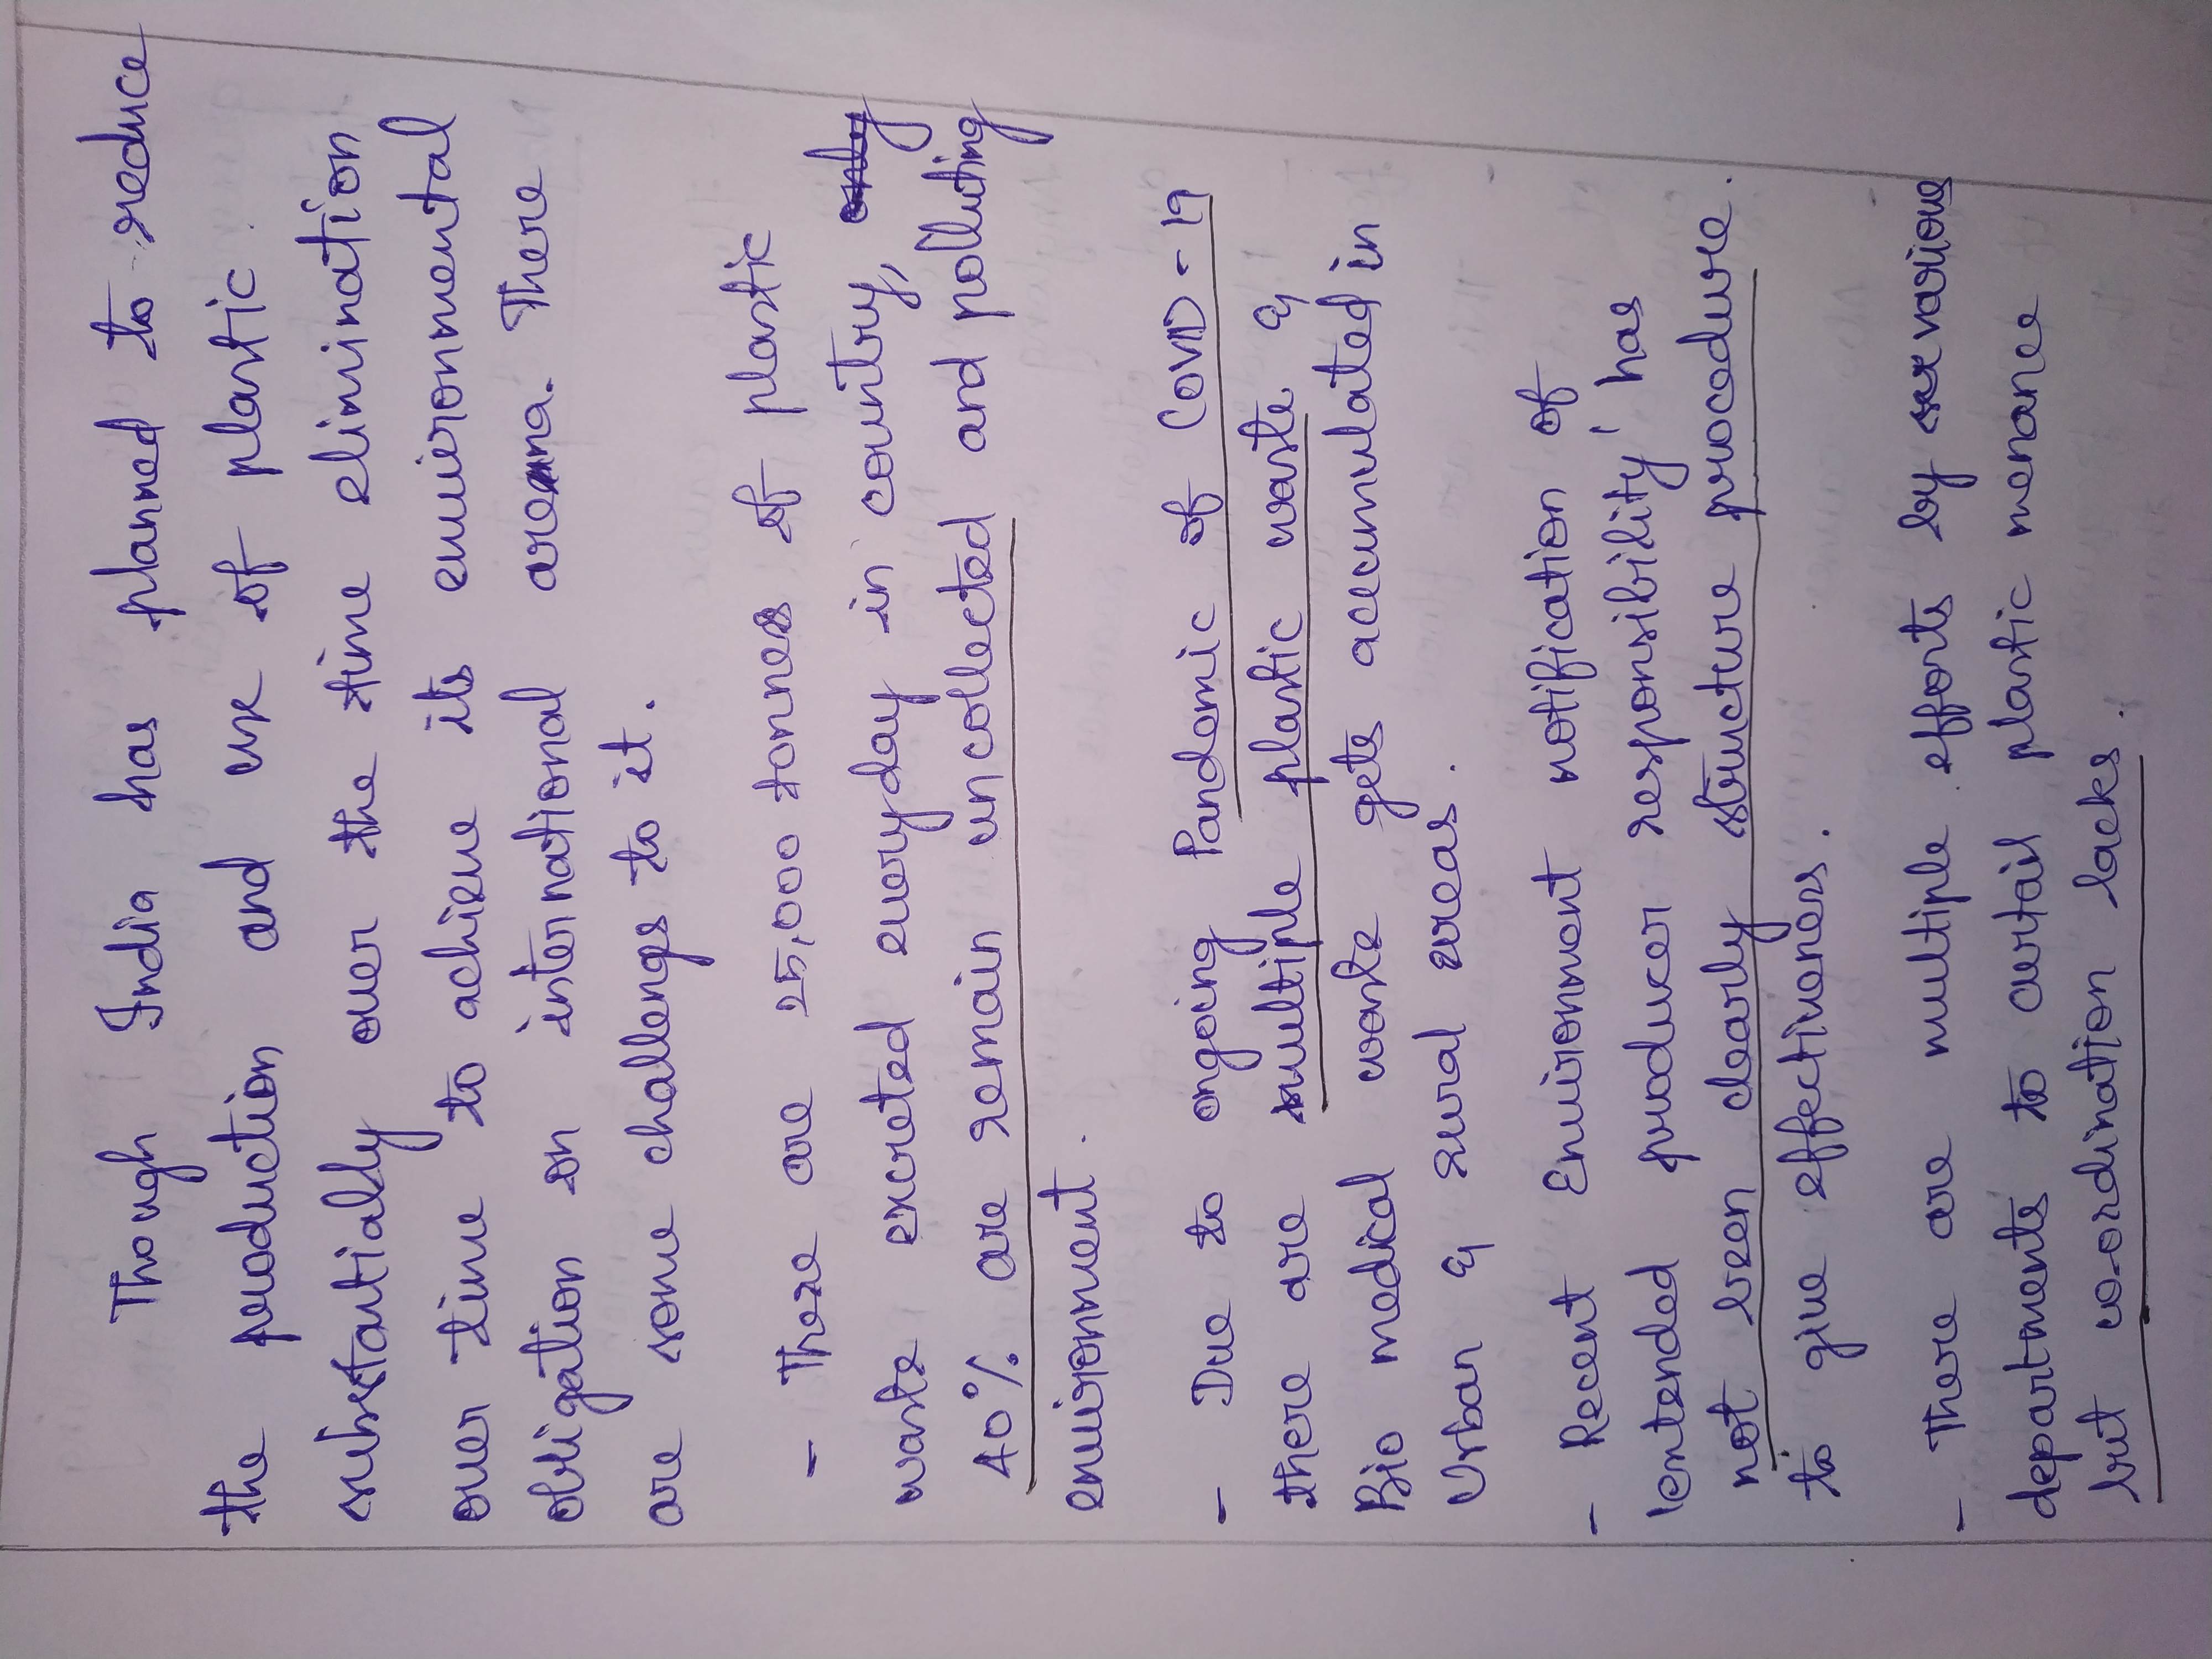 Though India has planned to reduce
the production and use of plastic
substantially over the time elimination
over time to achieve its environmental
obligation on international arena. There
are some challenges to it.
- There are 25,000 tonnes of plastic
waste excreted everyday in country,
40% are remain uncollected and polluting
environment.
- Due to ongoing Pandemic of COVID-19
there are multiple plastic waste &
Bio medical waste gets accumulated in
Urban & rural areas.
- Recent Environment notification of
'entended producer responsibility' has
not been clearly structure procedure.
to give effectiveness.
- There are multiple efforts by various
departments to curtail plastic menance
but co-ordination lacks.